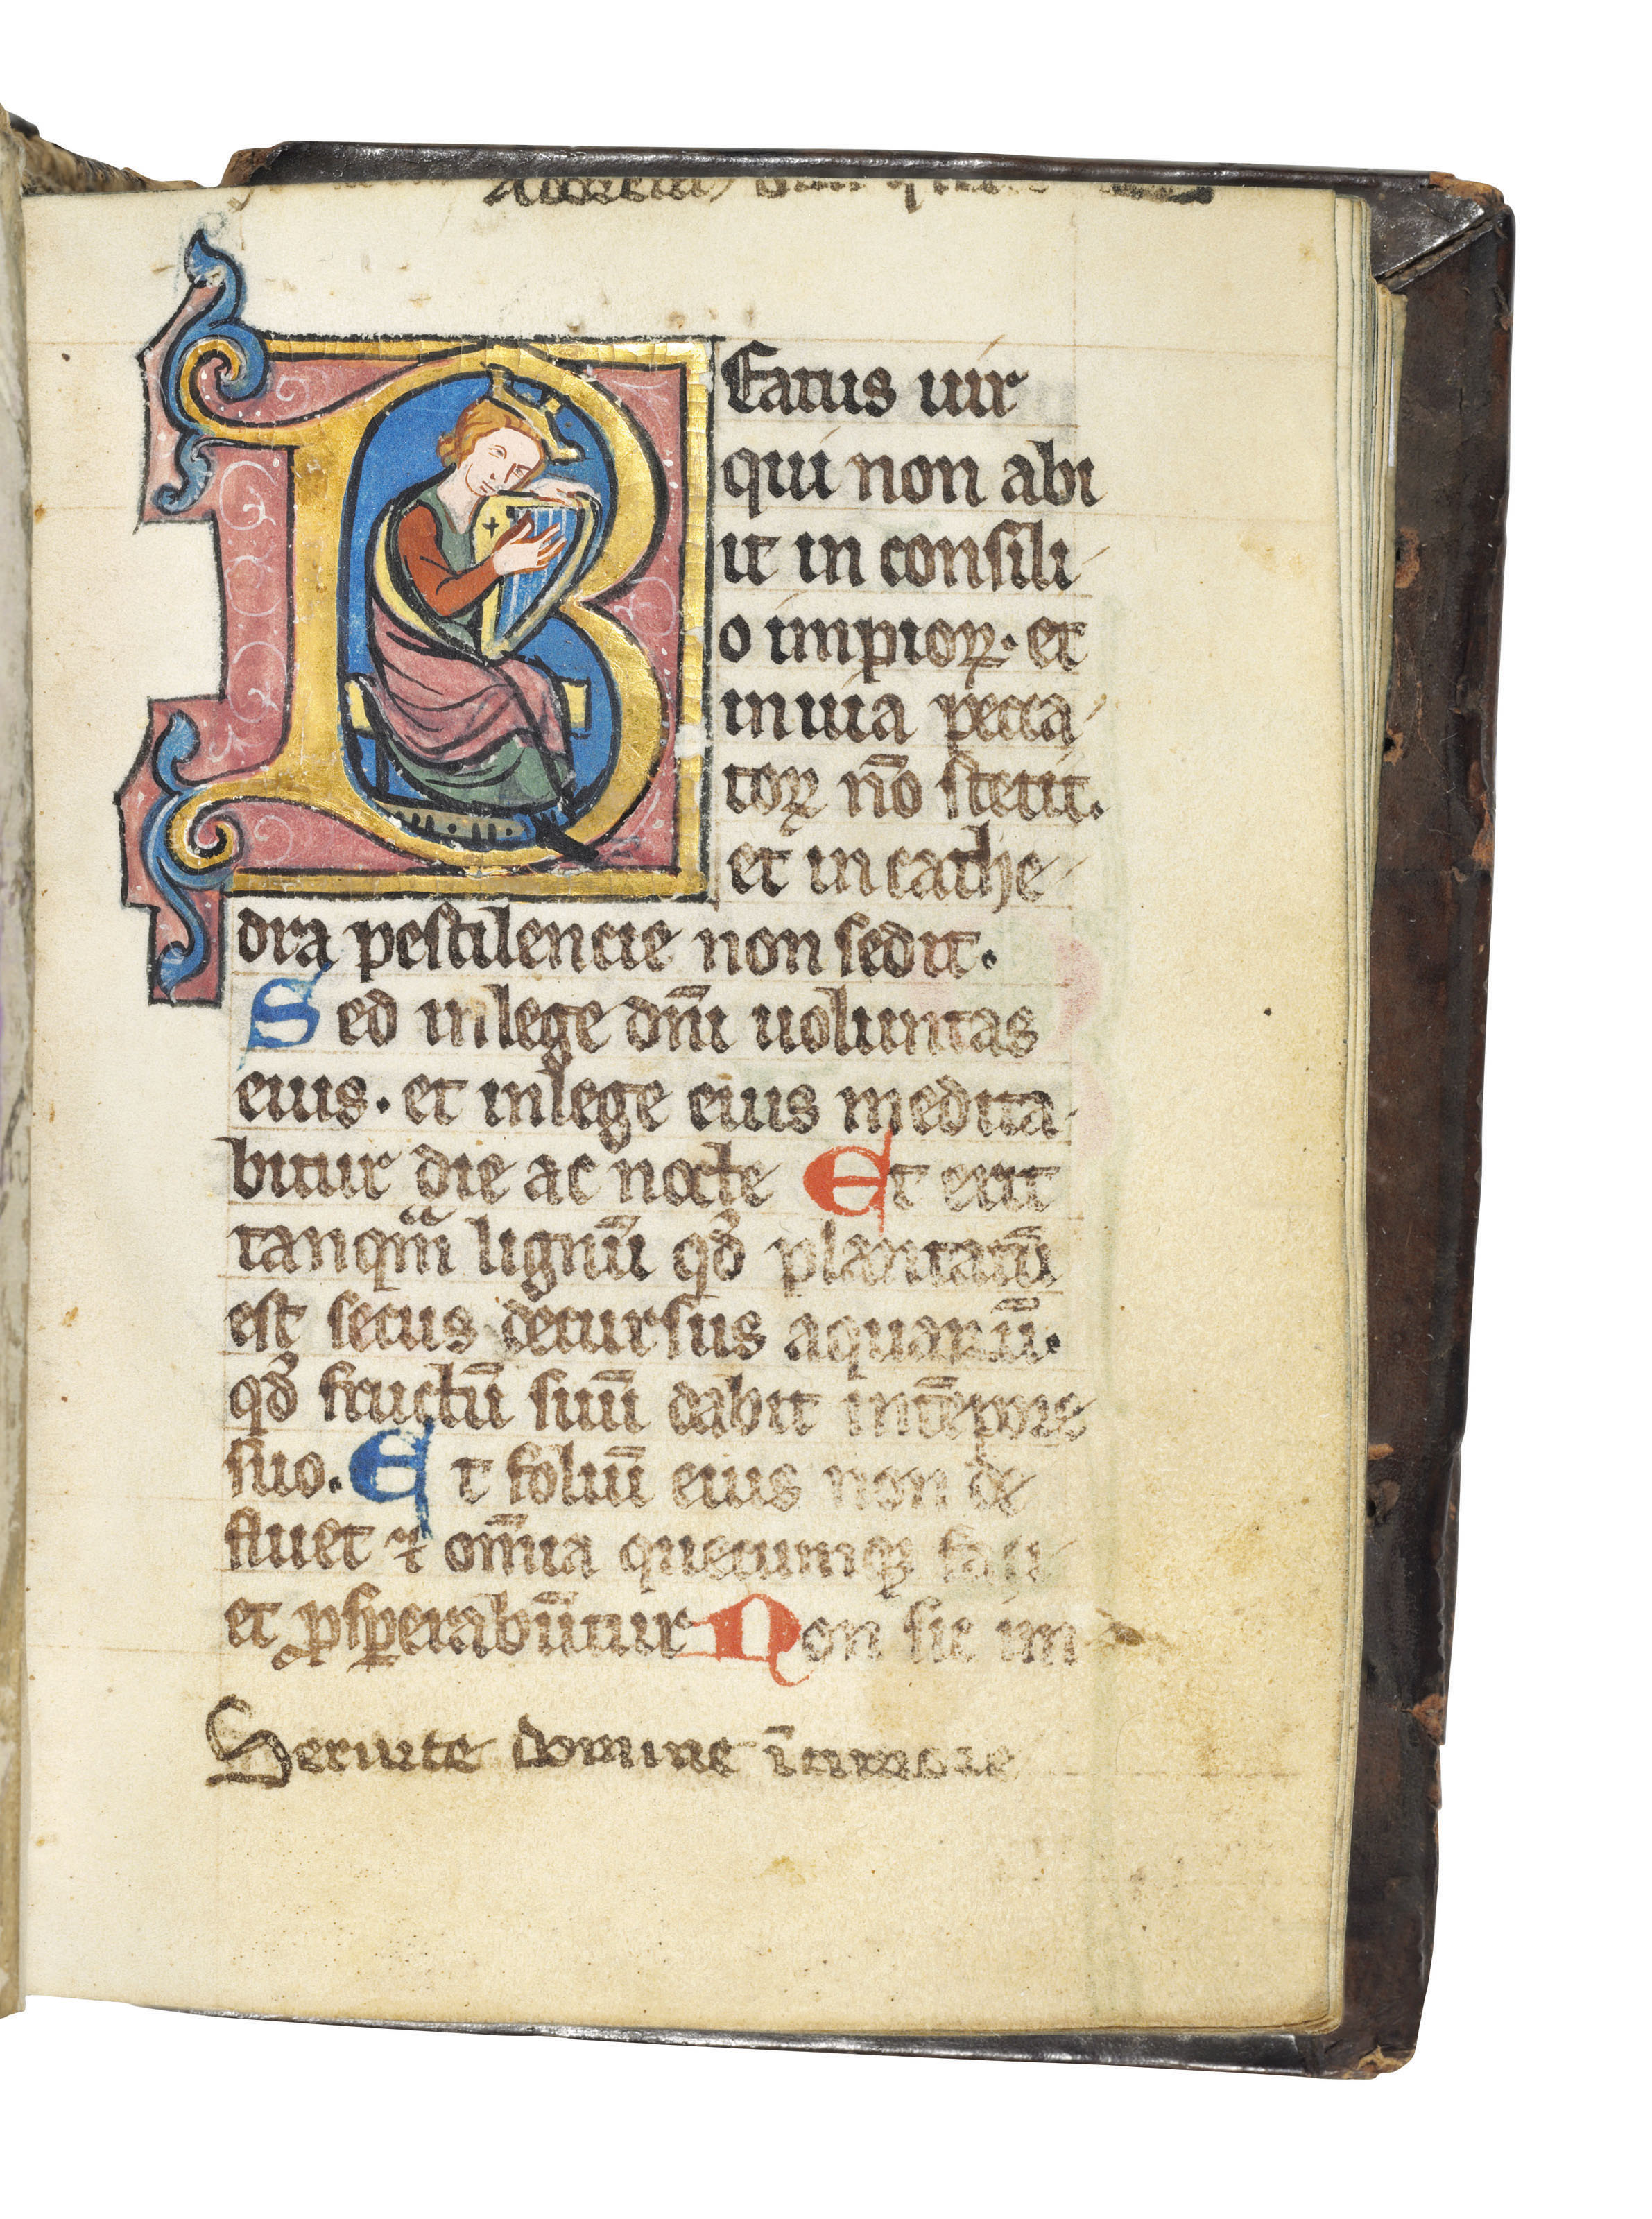 BEatus uir
qui non abi
it in consili
o impioꝝ. et
in uia pecca
toꝝ nō stetit.
et in cathe
dra pestilencie non sedit.
Sed in lege dn̄i uoluntas
eius. et in lege eius medita
bitur die ac nocte Et erit
tanqᵃm lignū qd̓ plantatū
est secus decursus aquarū.
qd̓ fructū suū dabit in tēpore
suo. Et foliū eius non de
fluet ⁊ om̄ia quecumqꝫ faci
et ꝓsꝑerabūtur Non sic im
Seruite domine ī timore